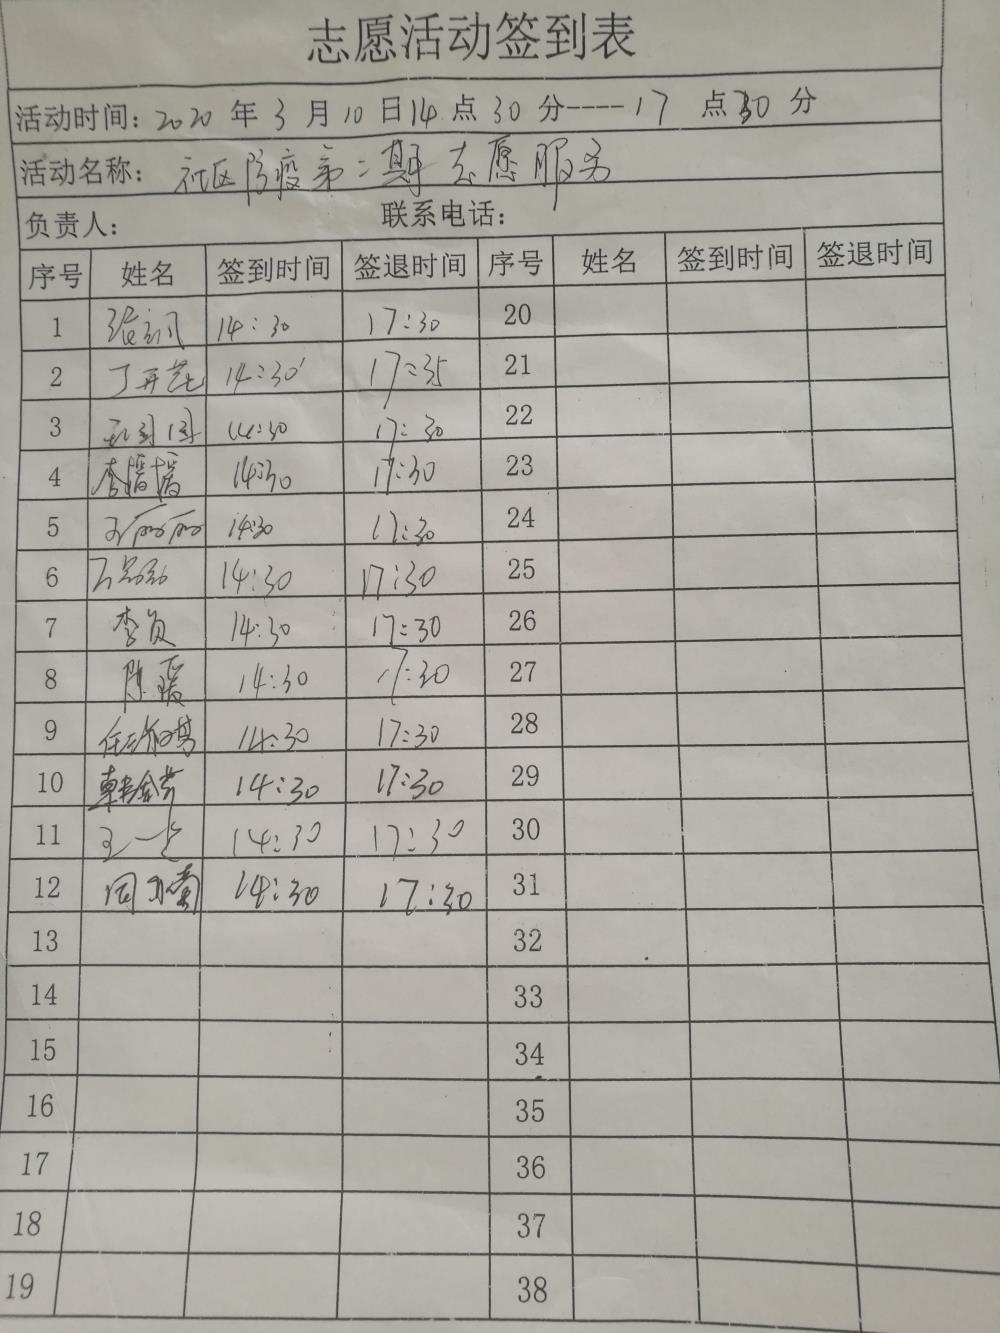 志愿活动签到表
活动时间：2020 年 3 月 10 日 14 点 30 分----17 点 30 分
活动名称：社区防疫第二期志愿服务
负责人： 联系电话：
序号 姓名 签到时间 签退时间 序号 姓名 签到时间 签退时间
1 14:30 17:30 20
2 14:30 17:35 21
3 14:30 17:30 22
4 李瑶瑶 14:30 17:30 23
5 王丽丽 14:30 17:30 24
6 14:30 17:30 25
7 李贞 14:30 17:30 26
8 陈瑶 14:30 17:30 27
9 14:30 17:30 28
10 14:30 17:30 29
11 王一 14:30 17:30 30
12 14:30 17:30 31
13 32
14 33
15 34
16 35
17 36
18 37
19 38